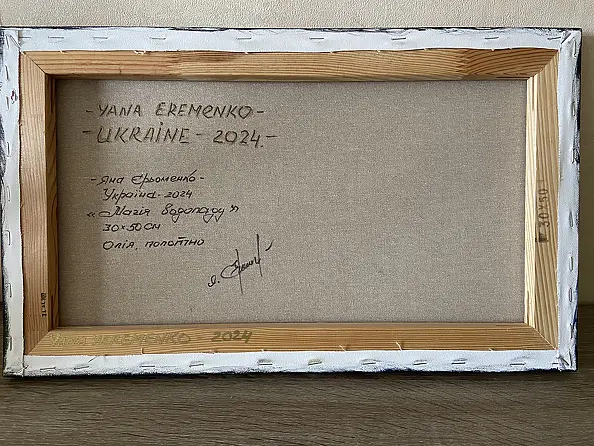 - YANA EREMENKO -
- UKRAINE - 2024. -
- Яна Єрьоменко -
Україна - 2024
"Магія водопаду"
30×50 см
Олія, полотно
30×50
YANA EREMENKO 2024